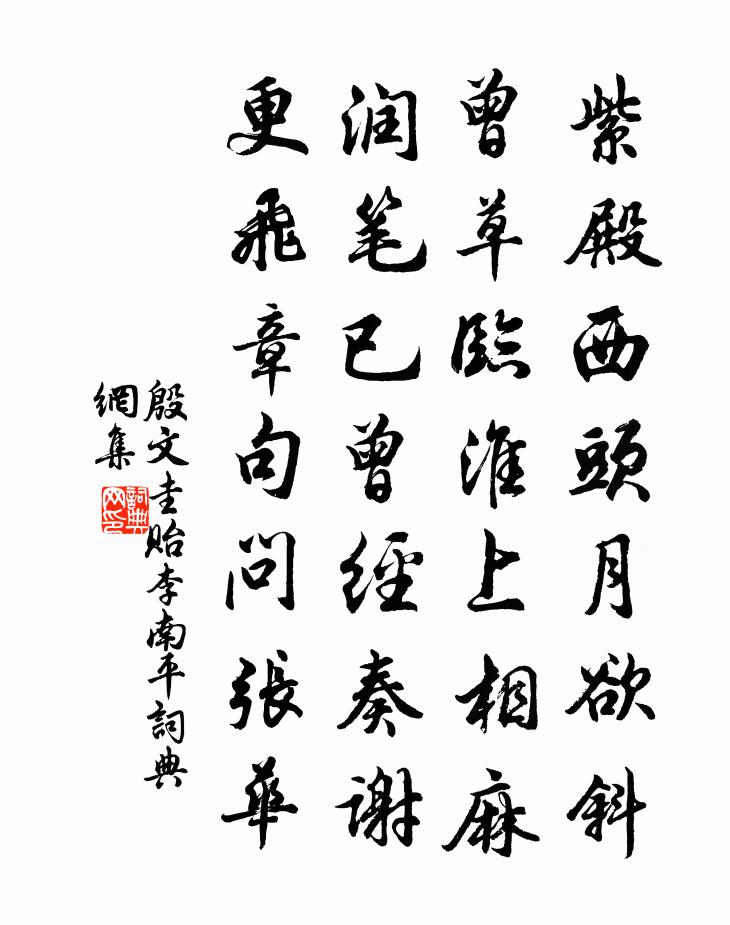 紫殿西頭月欲斜
曾草臨淮上相麻
润笔已曾經奏谢
更飛章句問張華
殷文圭貽李南平詞典
網集
詞典
网印